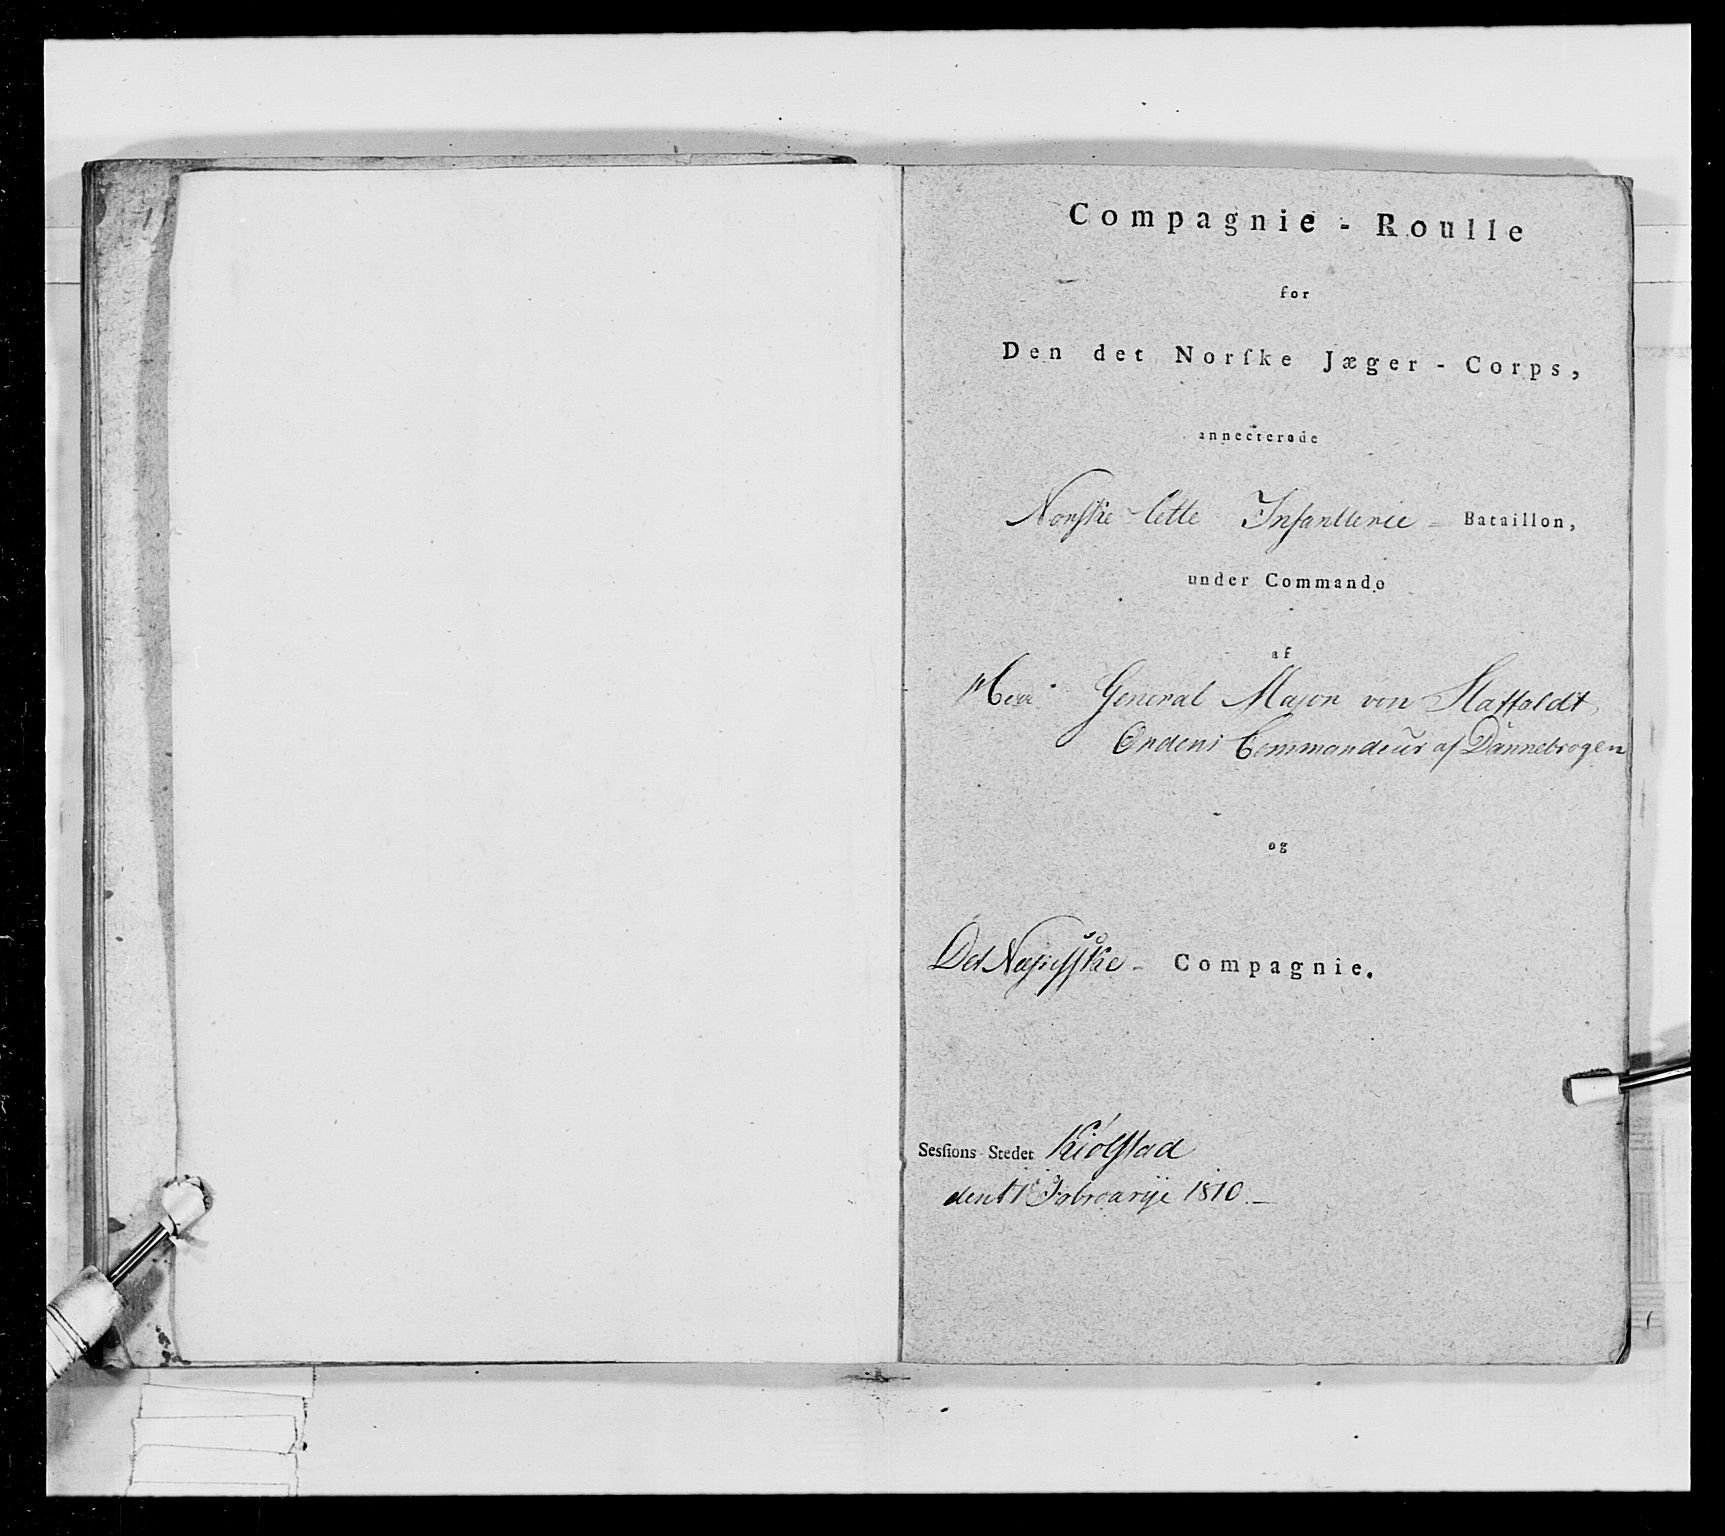 Compagnie - Roulle
for
Den det Norſke Jæger - Corps,
annecterede
Norſke lette Infanterie - Bataillon,
under Commando
af
Herr General Major von Staffeldt
Ordens Commandeur af Dannebrogen
og
Det - Compagnie.
Sesſions Stedet Kiølſtad
den Februarii 1810. —